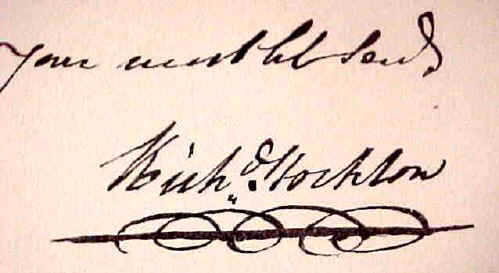 Your most hble Servt
Richd. Stockton